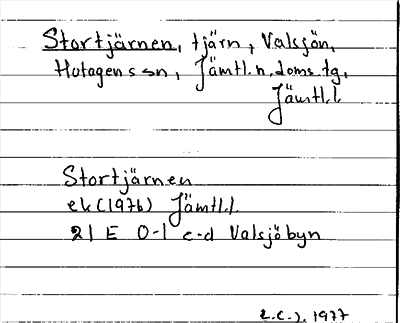 Stortjärnen, tjärn, Valsjön,
Hotagens sn, Jämtl.n.doms.tg,
Jämtl.l.
Stortjärnen
ek (1976) Jämtl.l.
21 E 0-1 c-d Valsjöbyn
1977